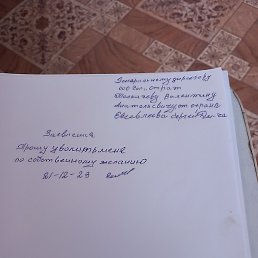 Генеральному директору
ооо сп, отрат
Толкачеву Валентину
Анатольевичу от охрана
Евсовлеева Сергея
Заявления
Прошу уволитьмена
по собственному желанию
21-12-23